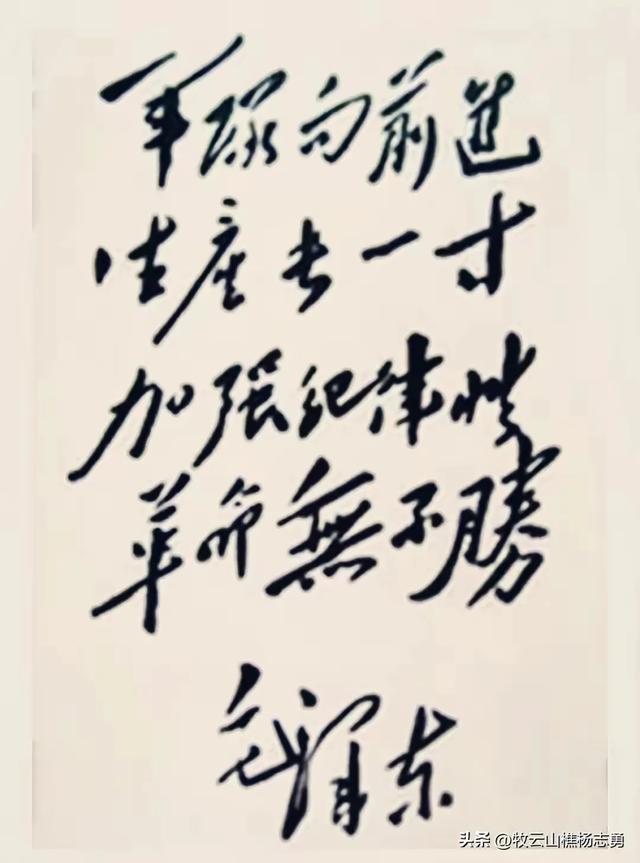 军队向前进
生产长一寸
加强纪律性
革命無不勝
毛泽东
头条 @牧云山樵杨志勇